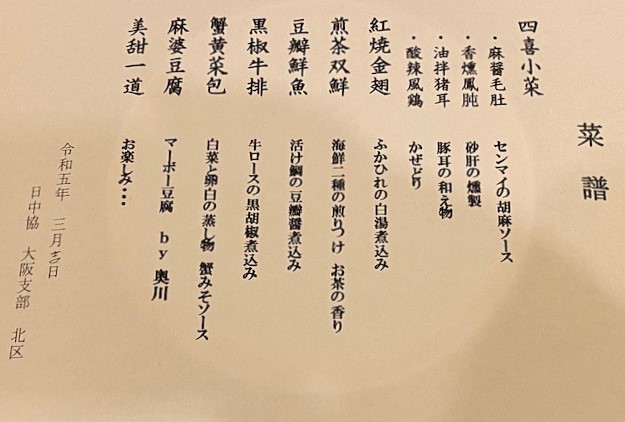 菜譜
四喜小菜
・麻醤毛肚 センマイの胡麻ソース
・香燻鳳肫 砂肝の燻製
・油拌猪耳 豚耳の和え物
・酸辣風鶏 かぜどり
紅焼金翅 ふかひれの白湯煮込み
煎茶双鮮 海鮮二種の煎りつけ お茶の香り
豆瓣鮮魚 活け鯛の豆瓣醤煮込み
黒椒牛排 牛ロースの黒胡椒煮込み
蟹黄菜包 白菜と卵白の蒸し物 蟹みそソース
麻婆豆腐 マーボー豆腐 by 奥川
美甜一道 お楽しみ・・・
令和五年 三月 日
日中協 大阪支部 北区